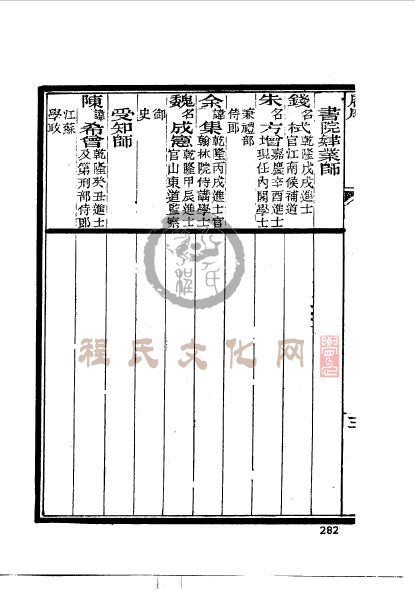 書院肄業師
錢名栻乾隆戊戌進士官江南候補道
朱名方增嘉慶辛酉進士現任內閣學士
兼禮部侍郎
余諱集乾隆丙戌進士官翰林院侍講學士
魏名成憲乾隆甲辰進士官山東道監察
御史
受知師
陳諱希曾乾隆癸丑進士及第刑部侍郎
江蘇學政
三
程氏文化网
282